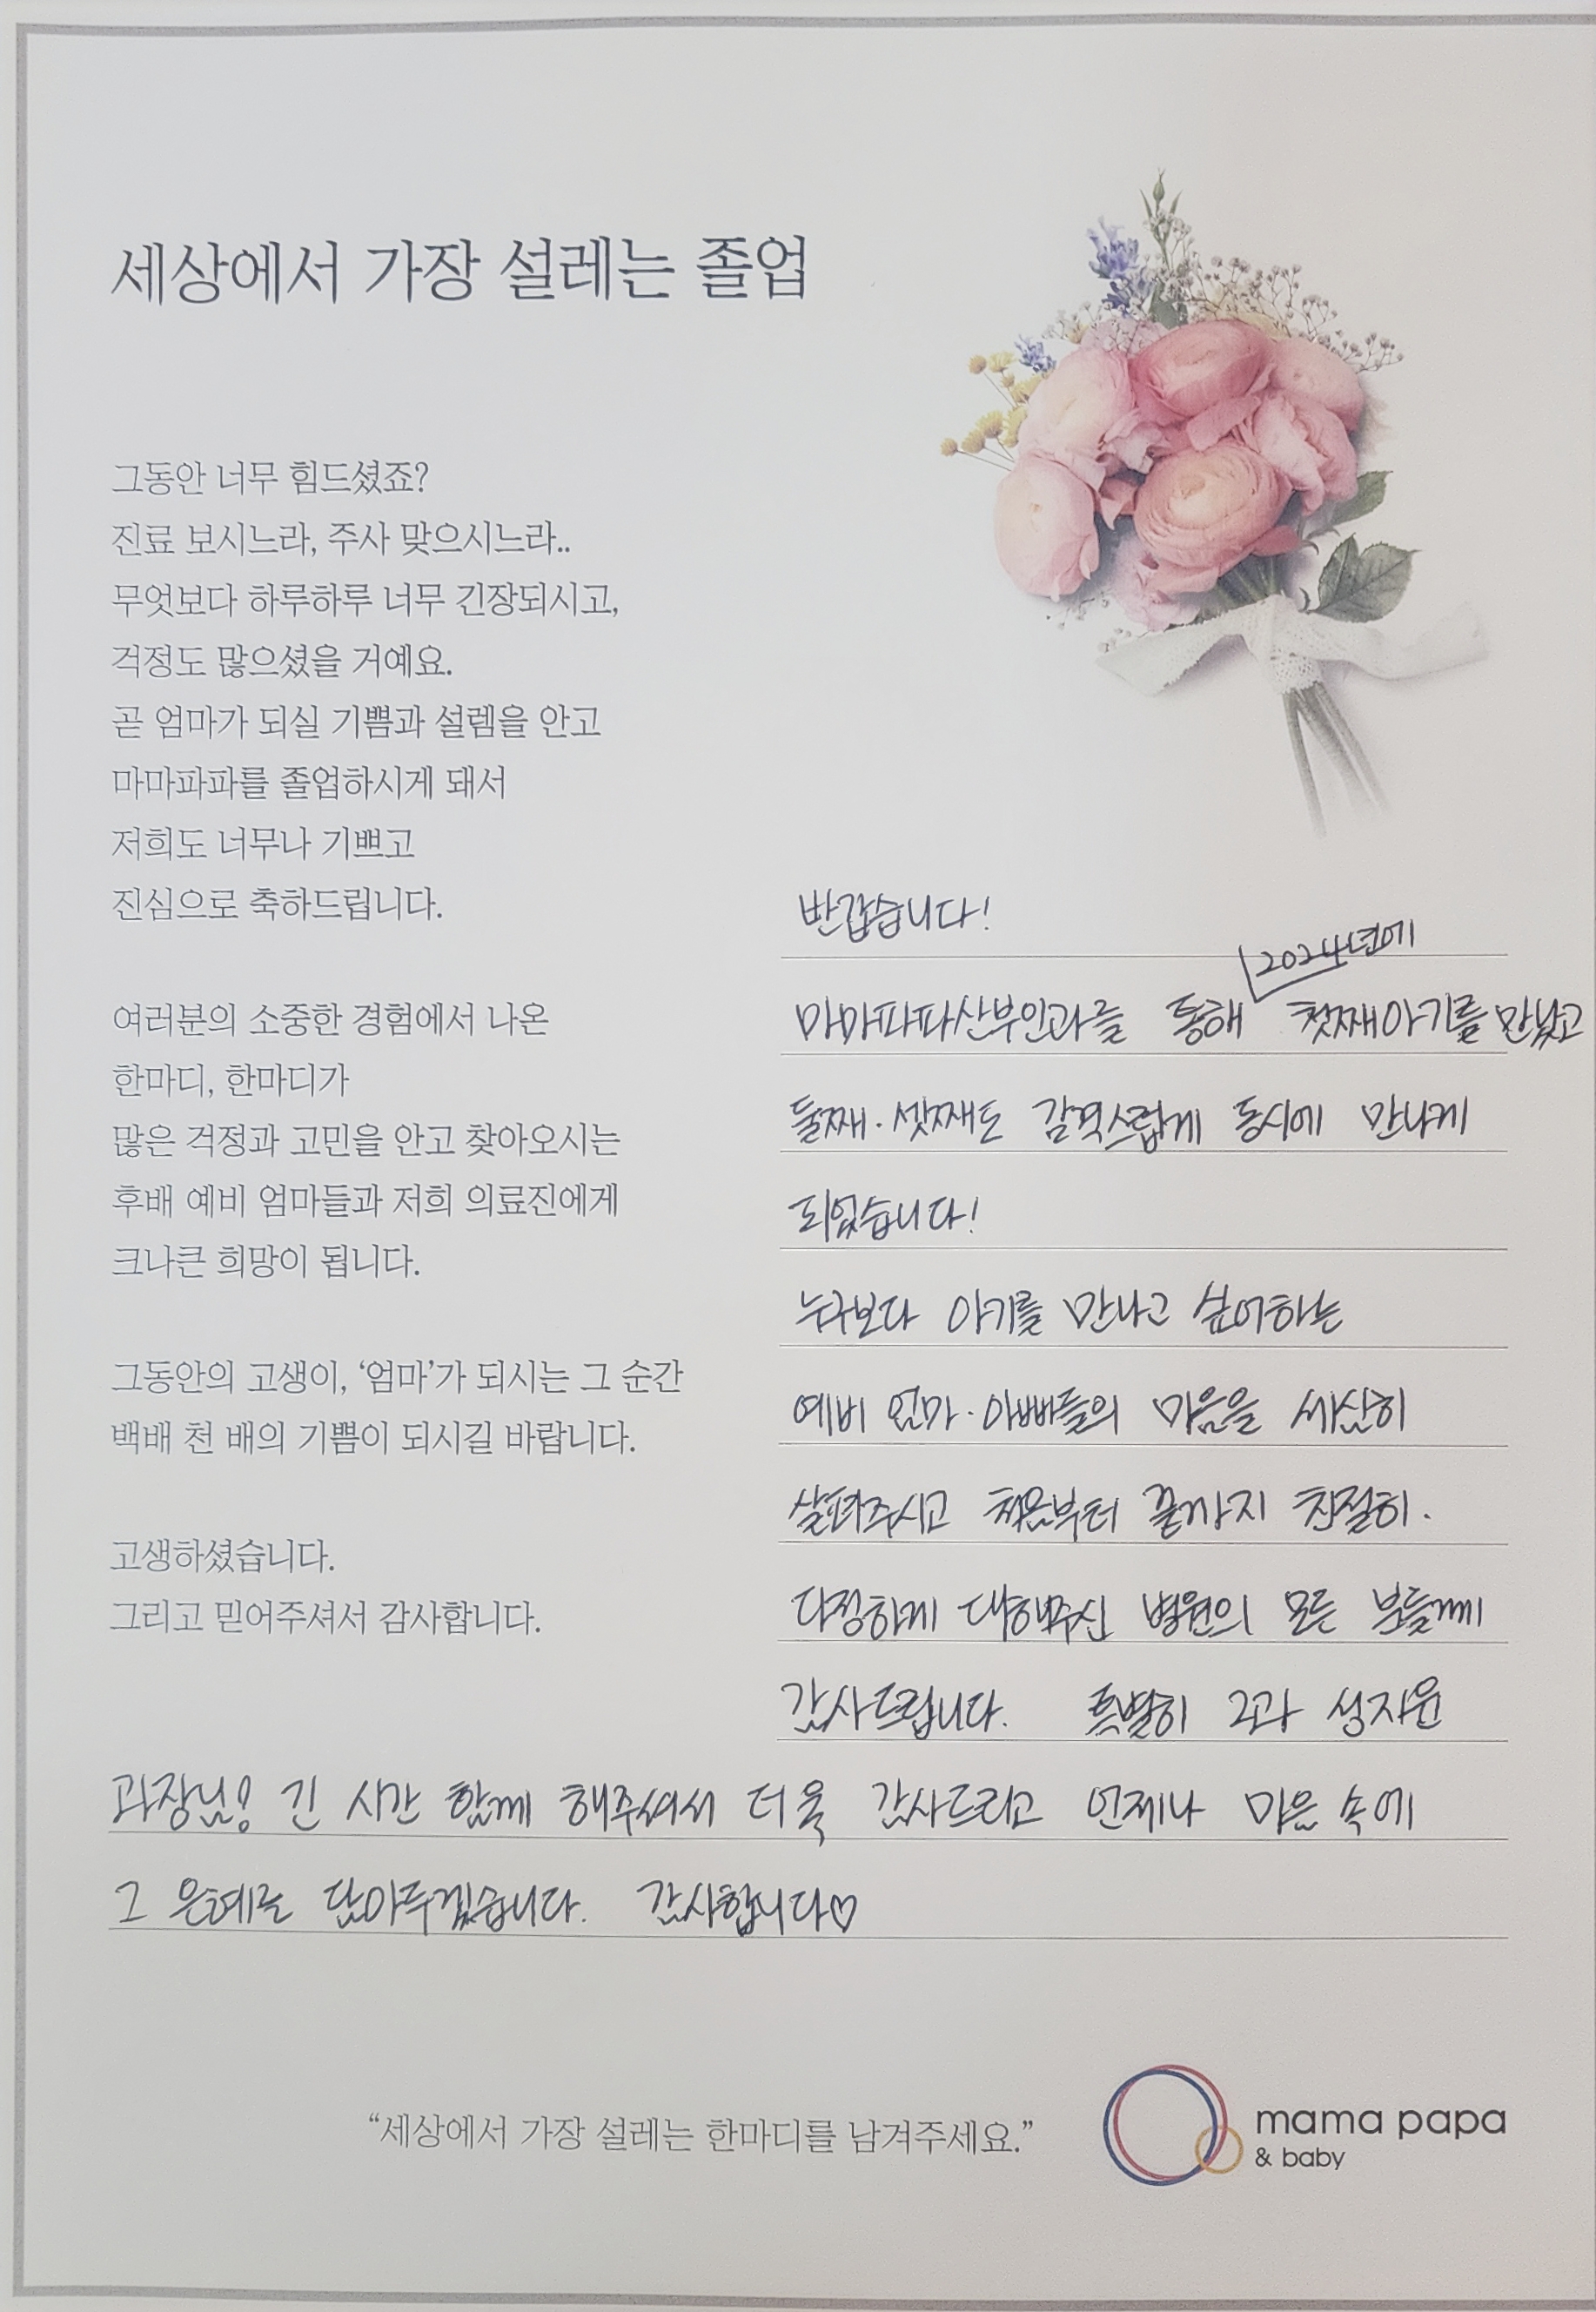 세상에서 가장 설레는 졸업
그동안 너무 힘드셨죠?
진료 보시느라, 주사 맞으시느라..
무엇보다 하루하루 너무 긴장되시고,
걱정도 많으셨을 거예요.
곧 엄마가 되실 기쁨과 설렘을 안고
마마파파를 졸업하시게 돼서
저희도 너무나 기쁘고
진심으로 축하드립니다.
여러분의 소중한 경험에서 나온
한마디, 한마디가
많은 걱정과 고민을 안고 찾아오시는
후배 예비 엄마들과 저희 의료진에게
크나큰 희망이 됩니다.
그동안의 고생이, ‘엄마’가 되시는 그 순간
백배 천 배의 기쁨이 되시길 바랍니다.
고생하셨습니다.
그리고 믿어주셔서 감사합니다.
반갑습니다!
마마파파산부인과를 통해 2024년에 첫째아기를 만났고
둘째·셋째도 감격스럽게 동시에 만나게
되었습니다!
누구보다 아기를 만나고 싶어하는
예비 엄마·아빠들의 마음을 세심히
살펴주시고 처음부터 끝까지 친절히·
다정하게 대해주신 병원의 모든 분들께
감사드립니다. 특별히 2과 성지윤
과장님! 긴 시간 함께 해주셔서 더욱 감사드리고 언제나 마음 속에
그 은혜를 담아두겠습니다. 감사합니다♡
“세상에서 가장 설레는 한마디를 남겨주세요.”
mama papa
& baby